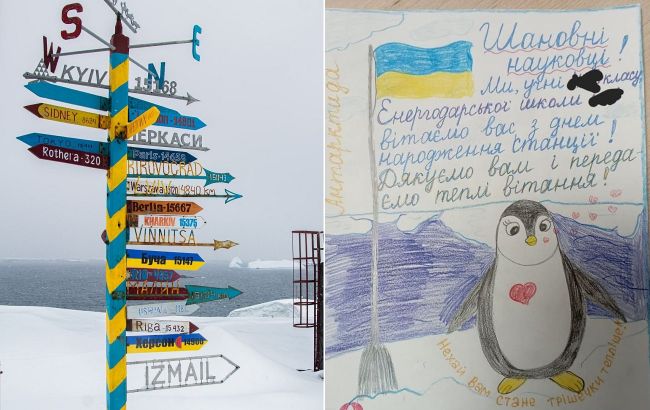 S
E
W
N
KYIV 15168
SIDNEY
TOKYO
ЧЕРКАСИ
Rothera-320
Paris-
KIROVOGRAD
15143
Warszawa 14840 KM
Berlin-15667
KHARKIV 15375
VINNITSA
Буча
Riga 15.432
Херсон
IZMAIL
Антарктида
Шановні
науковці!
Ми, учні класу
Енергодарської школи
вітаємо вас з днем
народження станції!
Дякуємо вам і переда-
ємо теплі вітання!
Нехай вам стане трішечки тепліше!